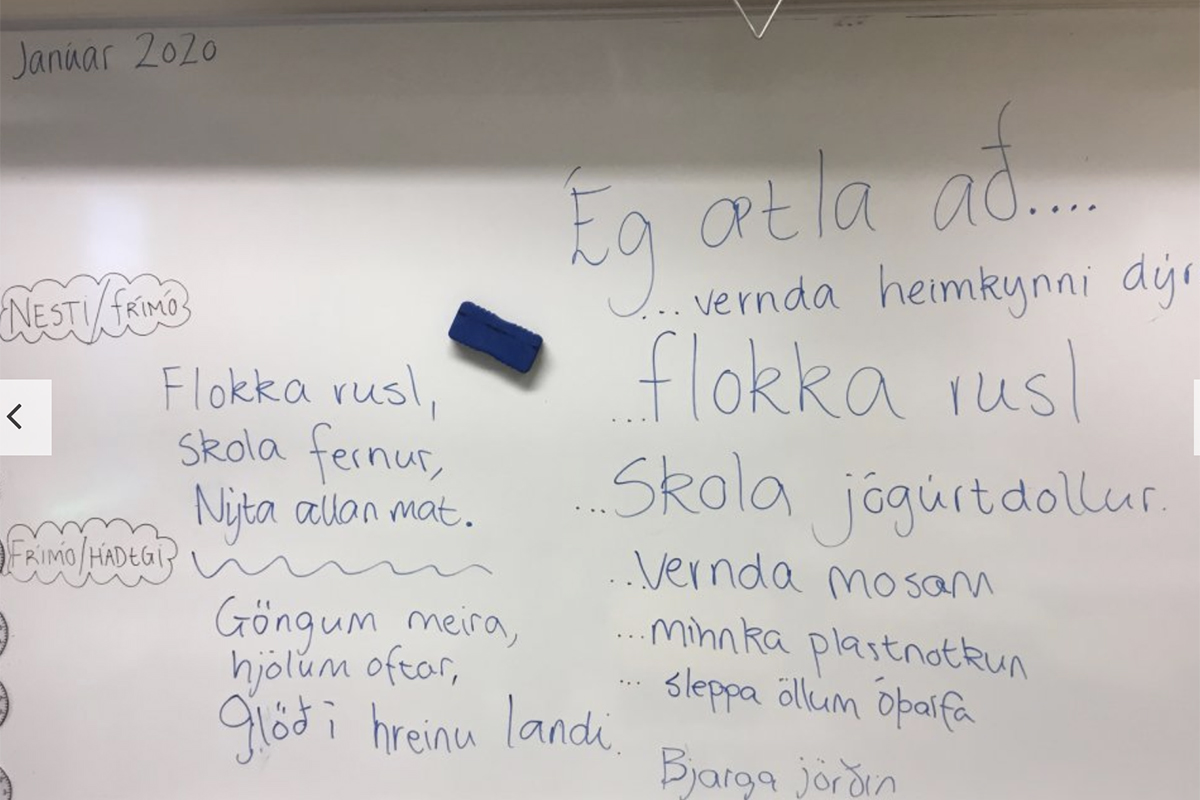 Janúar 2020
NESTI/FRÍMÓ
Flokka rusl,
skola fernur,
Nýta allan mat.
FRÍMÓ/HÁDEGI
Göngum meira,
hjólum oftar,
glöð í hreinu landi.
Ég ætla að....
...vernda heimkynni dýr
...flokka rusl
...Skola jógúrtdollur.
..Vernda mosann
...minnka plastnotkun
... sleppa öllum óþarfa
Bjarga jörðin